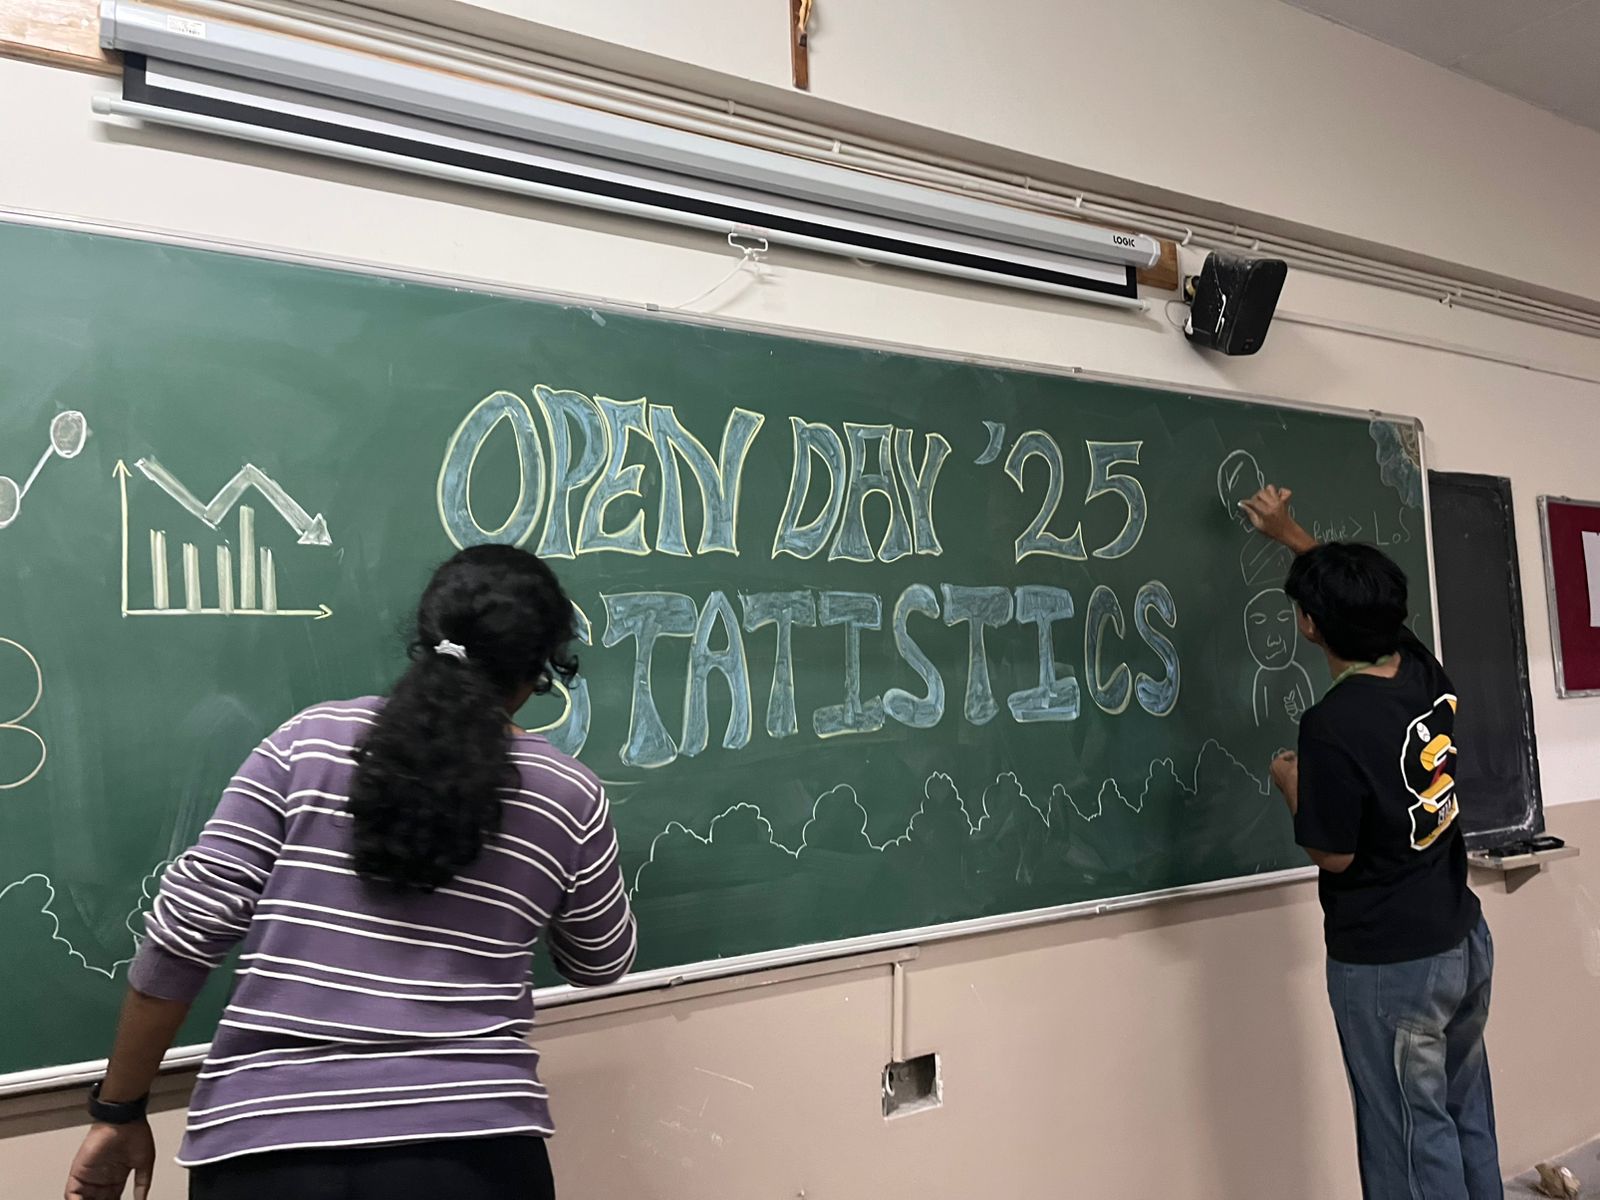 LOGIC
OPEN DAY '25
STATISTICS
> LoS